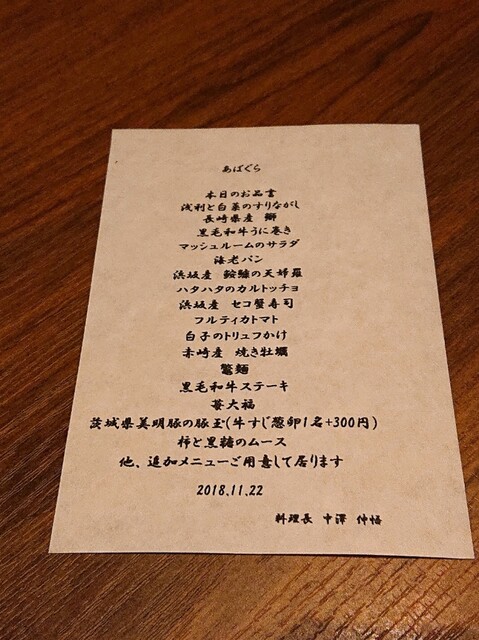 あばぐら
本日のお品書
浅利と白菜のすりながし
長崎県産 鰤
黒毛和牛うに巻き
マッシュルームのサラダ
海老パン
浜坂産 鮟鱇の天婦羅
ハタハタのカルトッチョ
浜坂産 セコ蟹寿司
フルティカトマト
白子のトリュフかけ
赤崎産 焼き牡蠣
鼈麺
黒毛和牛ステーキ
苺大福
茨城県美明豚の豚玉(牛すじ葱卵1名+300円)
柿と黒糖のムース
他、追加メニューご用意して居ります
2018.11.22
料理長 中澤 仲悟